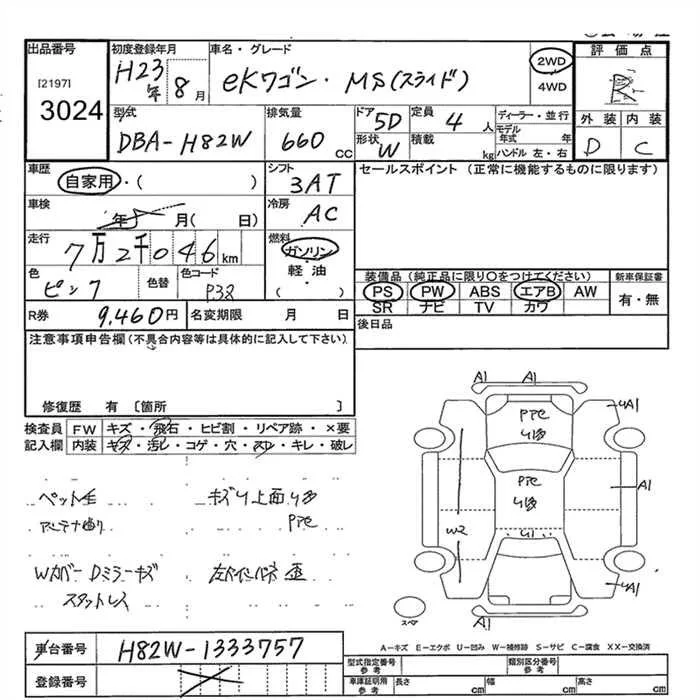 出品番号 初度登録年月 車名・グレード 評価点
[2197]
3024
H23年 8月 eKワゴン・MS(スライド) 2WD R
4WD
外装 内装
D C
型式 排気量 ドア 定員 ディーラー・並行
DBA-H82W 660cc 5D 4人 モデル年式 年
形状 積載
W kg ハンドル 左・右
車歴 シフト セールスポイント (正常に機能するものに限ります)
自家用・( ) 3AT
車検 冷房
年 月( 日) AC
走行 燃料
7万2千046km ガソリン・
軽油・
( )
色 色替 色コード
ピンク P38
装備品 (純正品に限り○をつけてください) 新車保証書
PS PW ABS エアB AW 有・無
SR ナビ TV カワ
R券 9,460円 名変期限 月 日
後日品
注意事項申告欄 (不具合内容等は具体的に記入して下さい)
修復歴 有 [箇所 ]
検査員 FW キズ・飛石・ヒビ割・リペア跡・×要
記入欄 内装 キズ・汚レ・コゲ・穴・スレ・キレ・破レ
ペット毛
アンテナ
Wカバー Dミラーキズ
スタットレス
キズU上面
A1 A1
UA1
A1
W2
U1
UA1
A1
スペア
A-キズ E-エクボ U-凹み W-補修跡 S-サビ C-腐食 XX-交換済
車台番号 H82W-1333757
登録番号
型式指定番号 参考 類別区分番号 参考
車庫証明用 参考 長さ cm 幅 cm 高さ cm